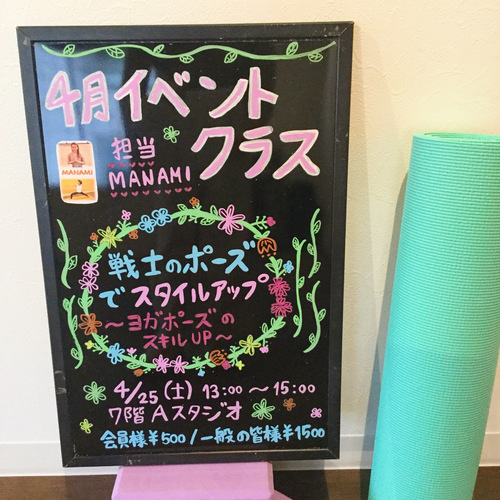 4月イベント
クラス
担当
MANAMI
MANAMI
戦士のポーズ
でスタイルアップ
〜ヨガポーズの
スキルUP〜
4/25(土) 13:00〜15:00
7階 Aスタジオ
会員様¥500/一般の皆様¥1500